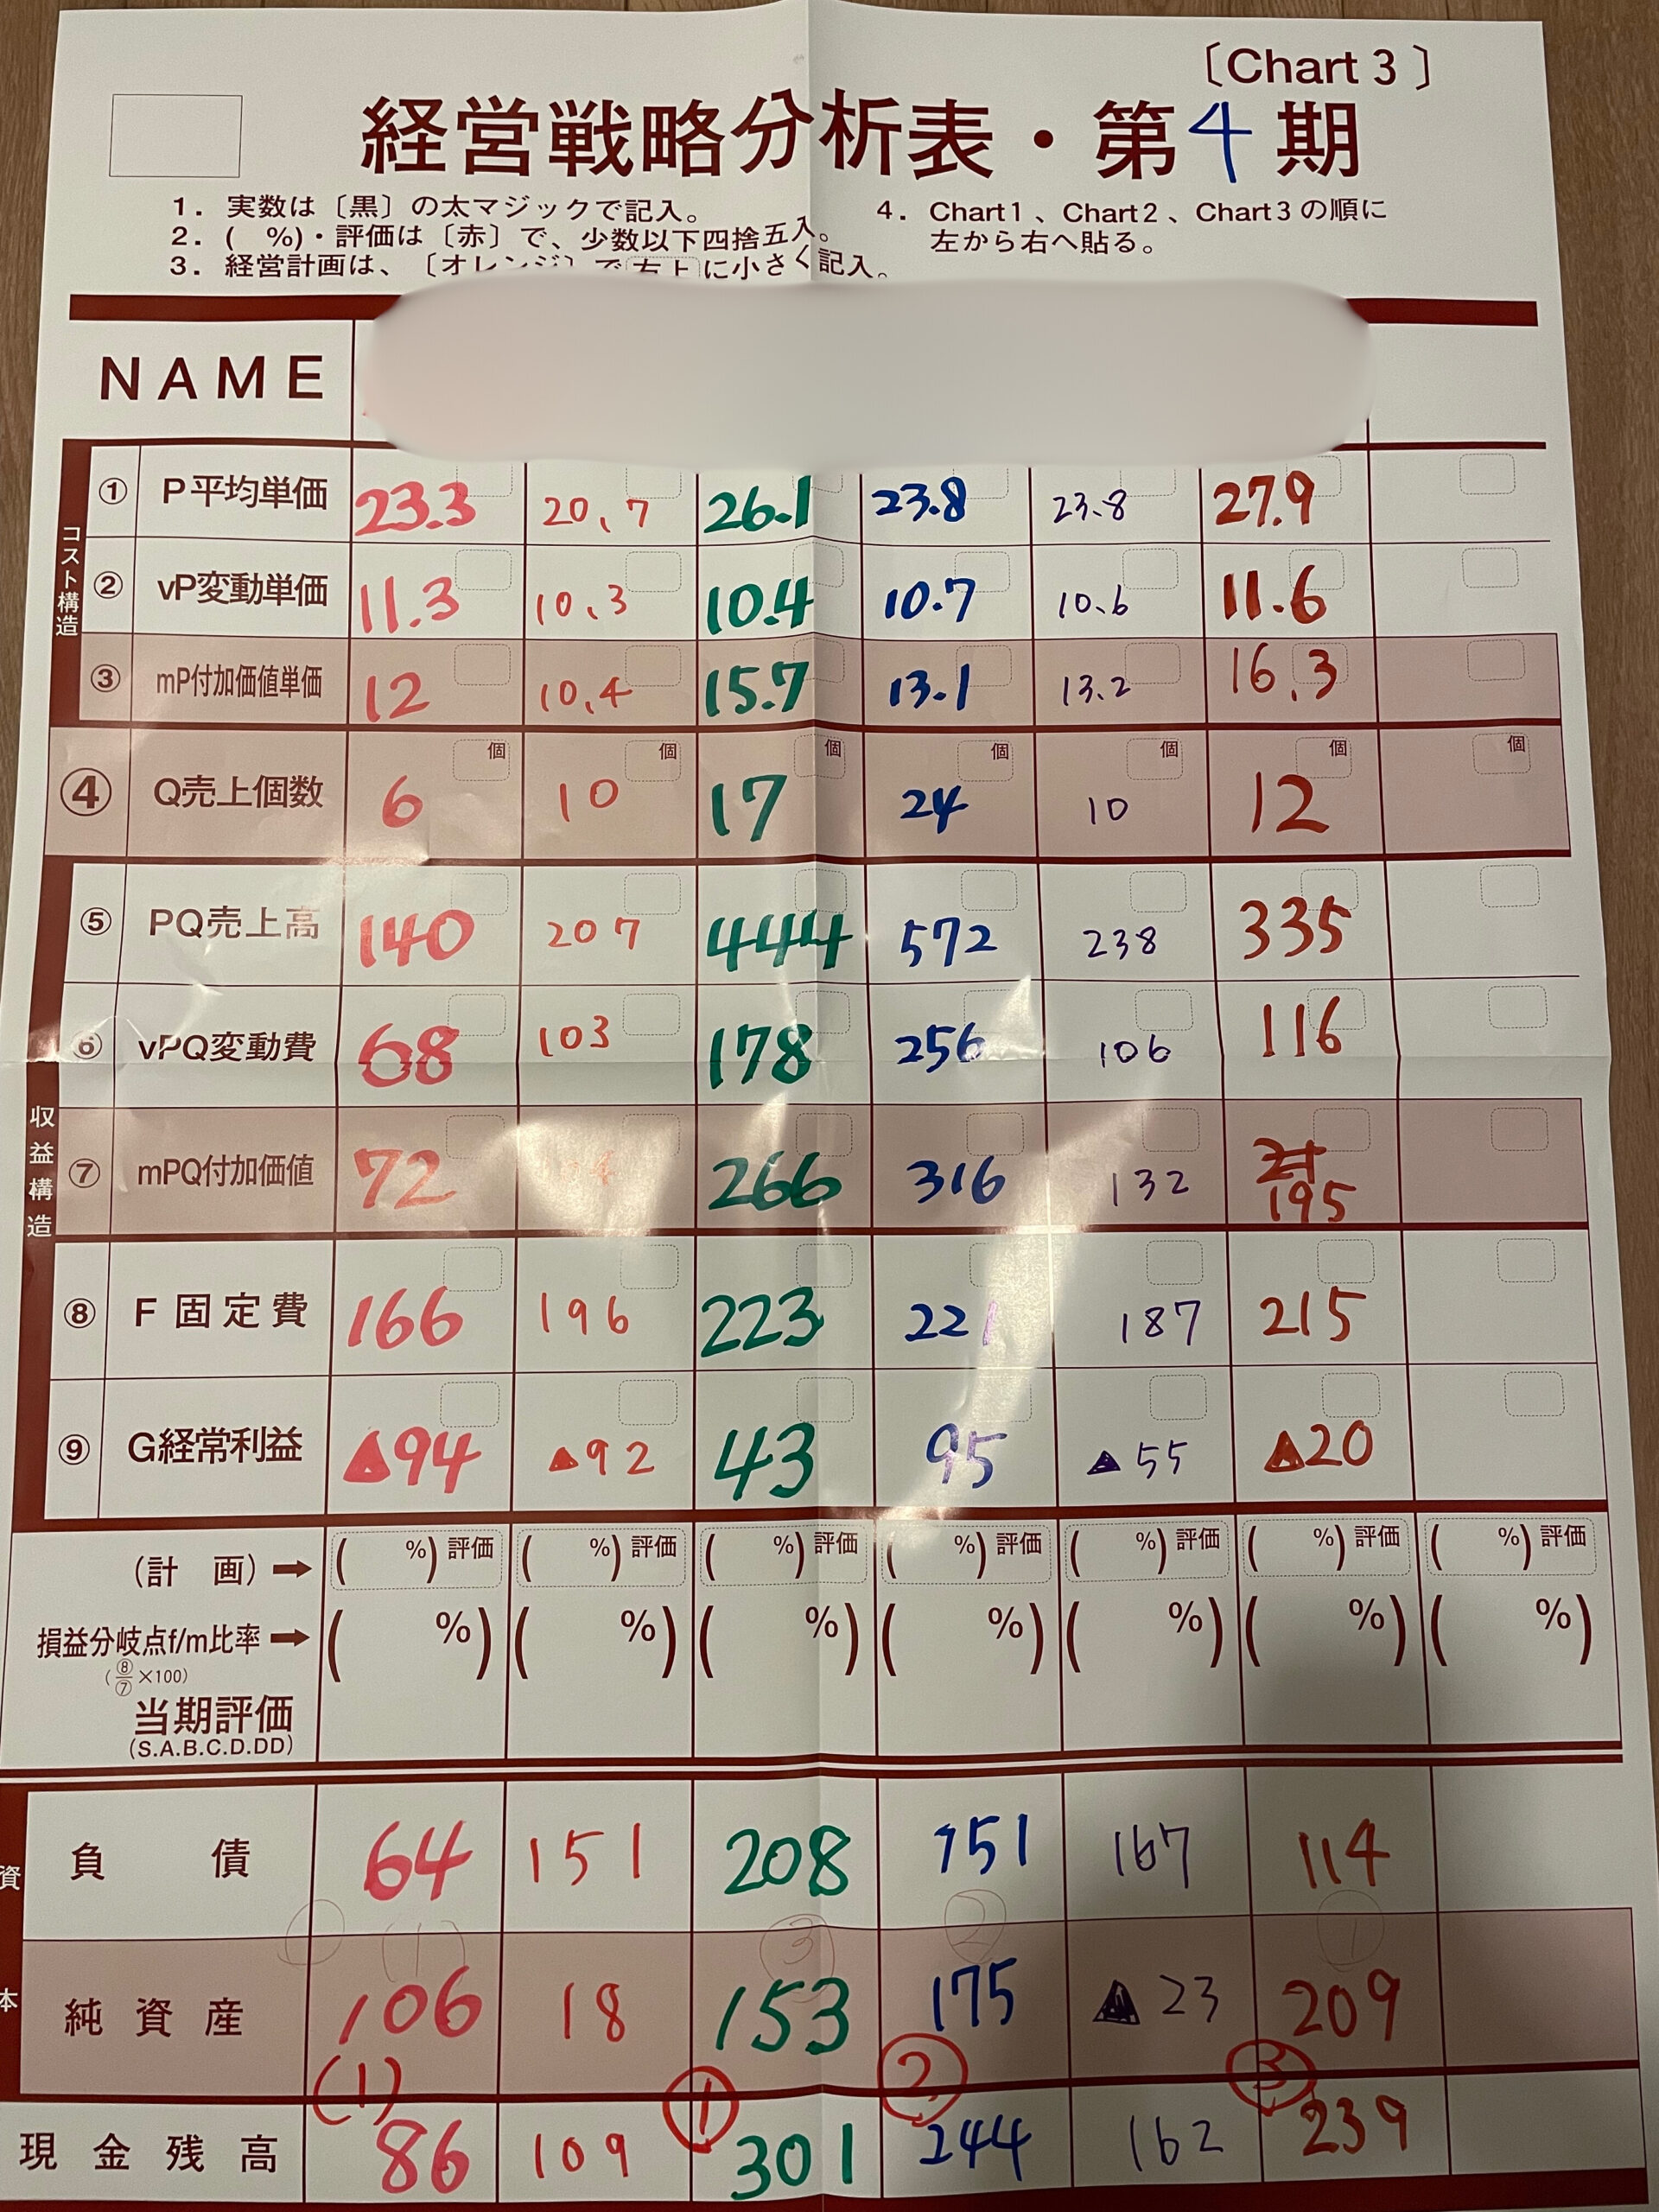 〔Chart 3〕
経営戦略分析表・第4期
1. 実数は〔黒〕の太マジックで記入。
2. ( %)・評価は〔赤〕で、少数以下四捨五入。
3. 経営計画は、〔オレンジ〕で右上に小さく記入。
4. Chart1、Chart2、Chart3の順に
左から右へ貼る。
NAME
コスト構造
① P平均単価 23.3 20.7 26.1 23.8 23.8 27.9
② vP変動単価 11.3 10.3 10.4 10.7 10.6 11.6
③ mP付加価値単価 12 10.4 15.7 13.1 13.2 16.3
④ Q売上個数 6個 10個 17個 24個 10個 12個 個
収益構造
⑤ PQ売上高 140 207 444 572 238 335
⑥ vPQ変動費 68 103 178 256 106 116
⑦ mPQ付加価値 72 266 316 132 195
⑧ F固定費 166 196 223 221 187 215
⑨ G経常利益 ▲94 ▲92 43 95 ▲55 ▲20
(計 画)➡ ( %)評価 ( %)評価 ( %)評価 ( %)評価 ( %)評価 ( %)評価 ( %)評価
損益分岐点f/m比率➡ ( %) ( %) ( %) ( %) ( %) ( %) ( %)
(⑧/⑦×100)
当期評価
(S.A.B.C.D.DD)
資本
負債 64 151 208 151 167 114
① (1) ③ ② ①
純資産 106 18 153 175 ▲23 209
(1) ① ② ③
現金残高 86 109 301 244 162 239